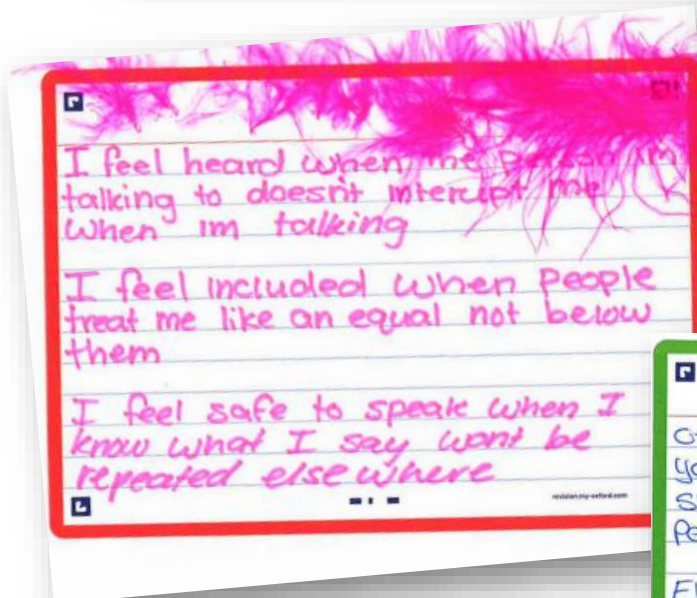 I feel heard when the person im
talking to doesn't intercept me
when im talking
I feel included when people
treat me like an equal not below
them
I feel safe to speak when I
know what I say wont be
repeated elsewhere
revision.my-oxford.com